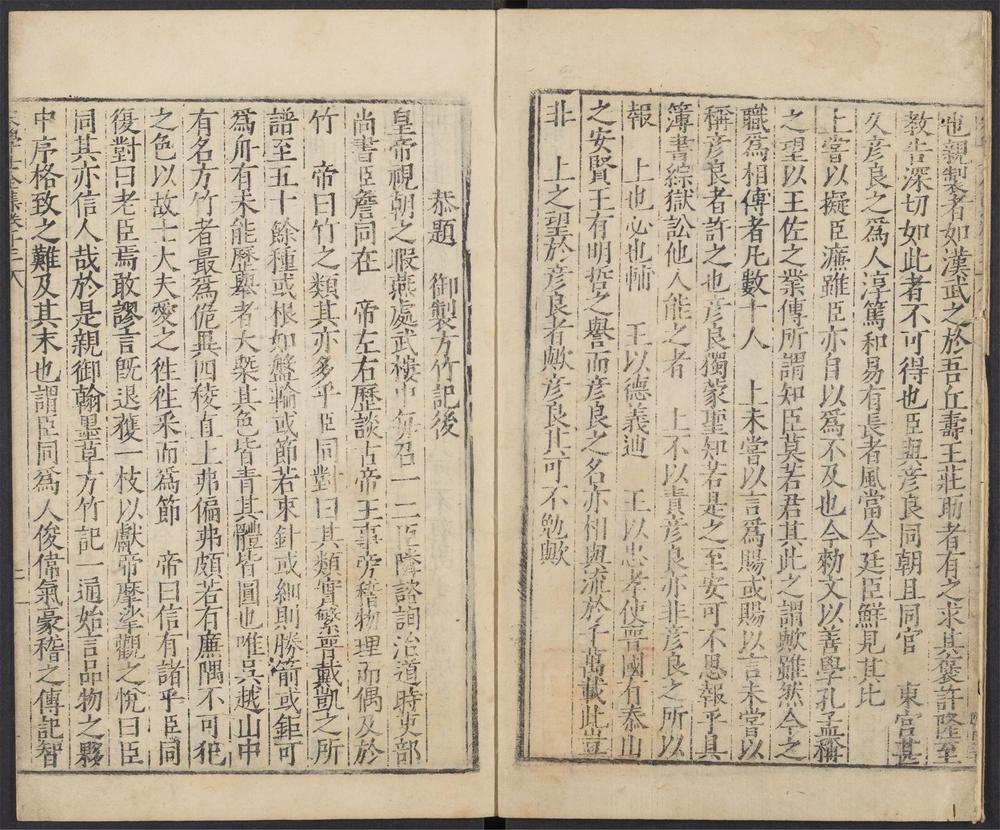 也親製者如漢武之於吾丘壽王莊助者有之求其褒許隆至
教告深切如此者不可得也臣與彥良同朝且同官 東宮甚
久彥良之爲人淳篤和易有長者風當今廷臣鮮見其比
上嘗以擬臣濂雖臣亦自以爲不及也今勑文以善學孔孟稱
之望以王佐之業傳所謂知臣莫若君其此之謂歟雖然今之
職爲相傅者凡數十人 上未嘗以言爲賜或賜以言未嘗以
稱彥良者許之也彥良獨蒙聖知若是之至安可不思報乎具
簿書綜獄訟他人能之者 上不以責彥良亦非彥良之所以
報 上也必也輔 王以德義迪 王以忠孝使晉國有泰山
之安賢王有明哲之譽而彥良之名亦相與流於千萬載此豈
非 上之望於彥良者歟彥良其可不勉歟
恭題 御製方竹記後
皇帝視朝之暇燕處武樓中每召一二臣隣諮詢治道時吏部
尚書臣詹同在 帝左右歷談古帝王事旁稽物理而偶及於
竹 帝曰竹之類其亦多乎臣同對曰其類實繁晉戴凱之所
譜至五十餘種或根如盤輪或節若束針或細則勝箭或鉅可
爲舟有未能歷舉者大槩其色皆青其體皆圓也唯吳越山中
有名方竹者最爲佹異四稜直上弗偏弗頗若有廉隅不可犯
之色以故士大夫愛之徃徃采而爲節 帝曰信有諸乎臣同
復對曰老臣焉敢謬言既退獲一枝以獻帝摩挲觀之悅曰臣
同其亦信人哉於是親御翰墨草方竹記一通始言品物之夥
中序格致之難及其末也謂臣同爲人俊偉氣豪稽之傳記智